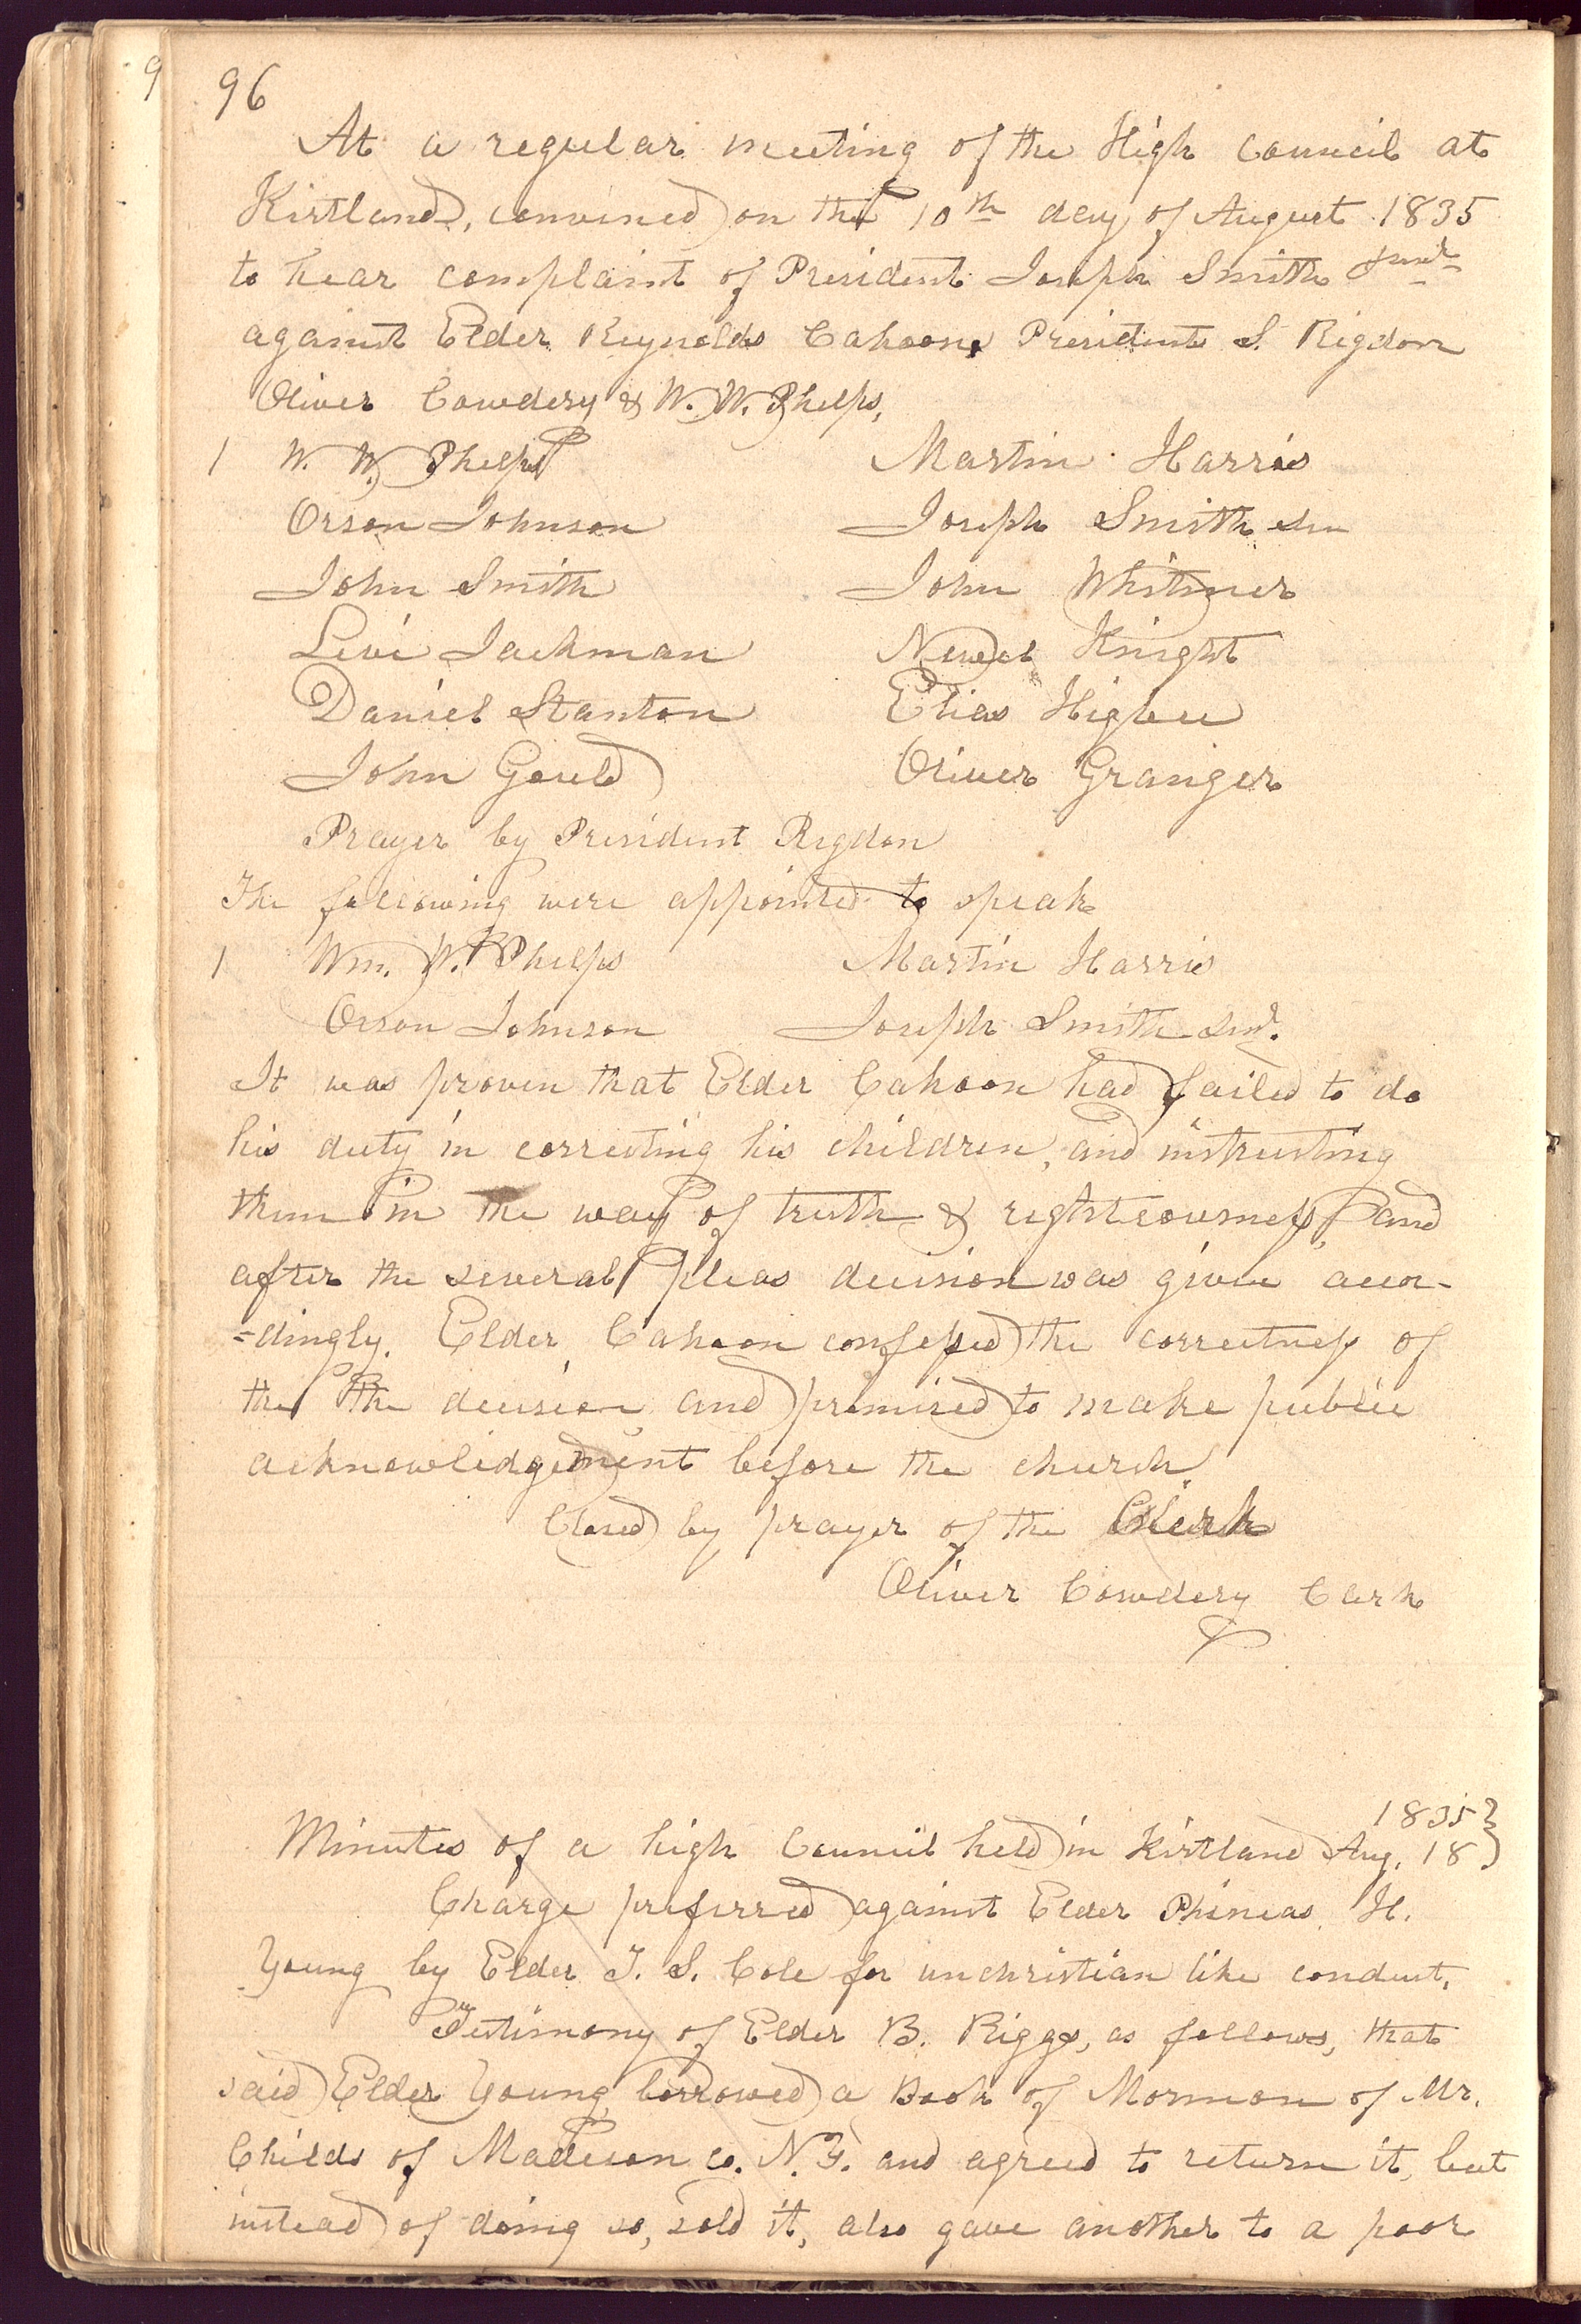 9 96
At a regular meeting of the High Council at
Kirtland, convened on the 10th day of August 1835
to hear complaint of President Joseph Smith Junr
against Elder Reynolds Cahoon, President S. Rigdon
Oliver Cowdery & W. W. Phelps,
1 W. W. Phelps Martin Harris
Orson Johnson Joseph Smith Sen
John Smith John Whitmer
Levi Jackman Newel Knight
Daniel Stanton Elias Higbee
John Gould Oliver Granger
Prayer by President Rigdon
The following were appointed to speak
1 Wm. W. Phelps Martin Harris
Orson Johnson Joseph Smith Senr.
It was proven that Elder Cahoon had failed to do
his duty in correcting his children, and instructing
them in the way of truth & righteousness, and
after the several pleas decision was given accor-
-dingly. Elder Cahoon confessed the correctness of
the the decision and promised to make public
acknowledgement before the church.
Closed by prayer of the Clerk
Oliver Cowdery Clerk
1835
Minutes of a high Council held in Kirtland Aug. 18
Charge preferred against Elder Phineas H.
Young by Elder J. S. Cole for unchristian like conduct.
Testimony of Elder B. Riggs, as follows, that
said Elder Young borrowed a Book of Mormon of Mr.
Childs of Madison co. N.Y. and agreed to return it, but
instead of doing so, sold it, also gave another to a poor